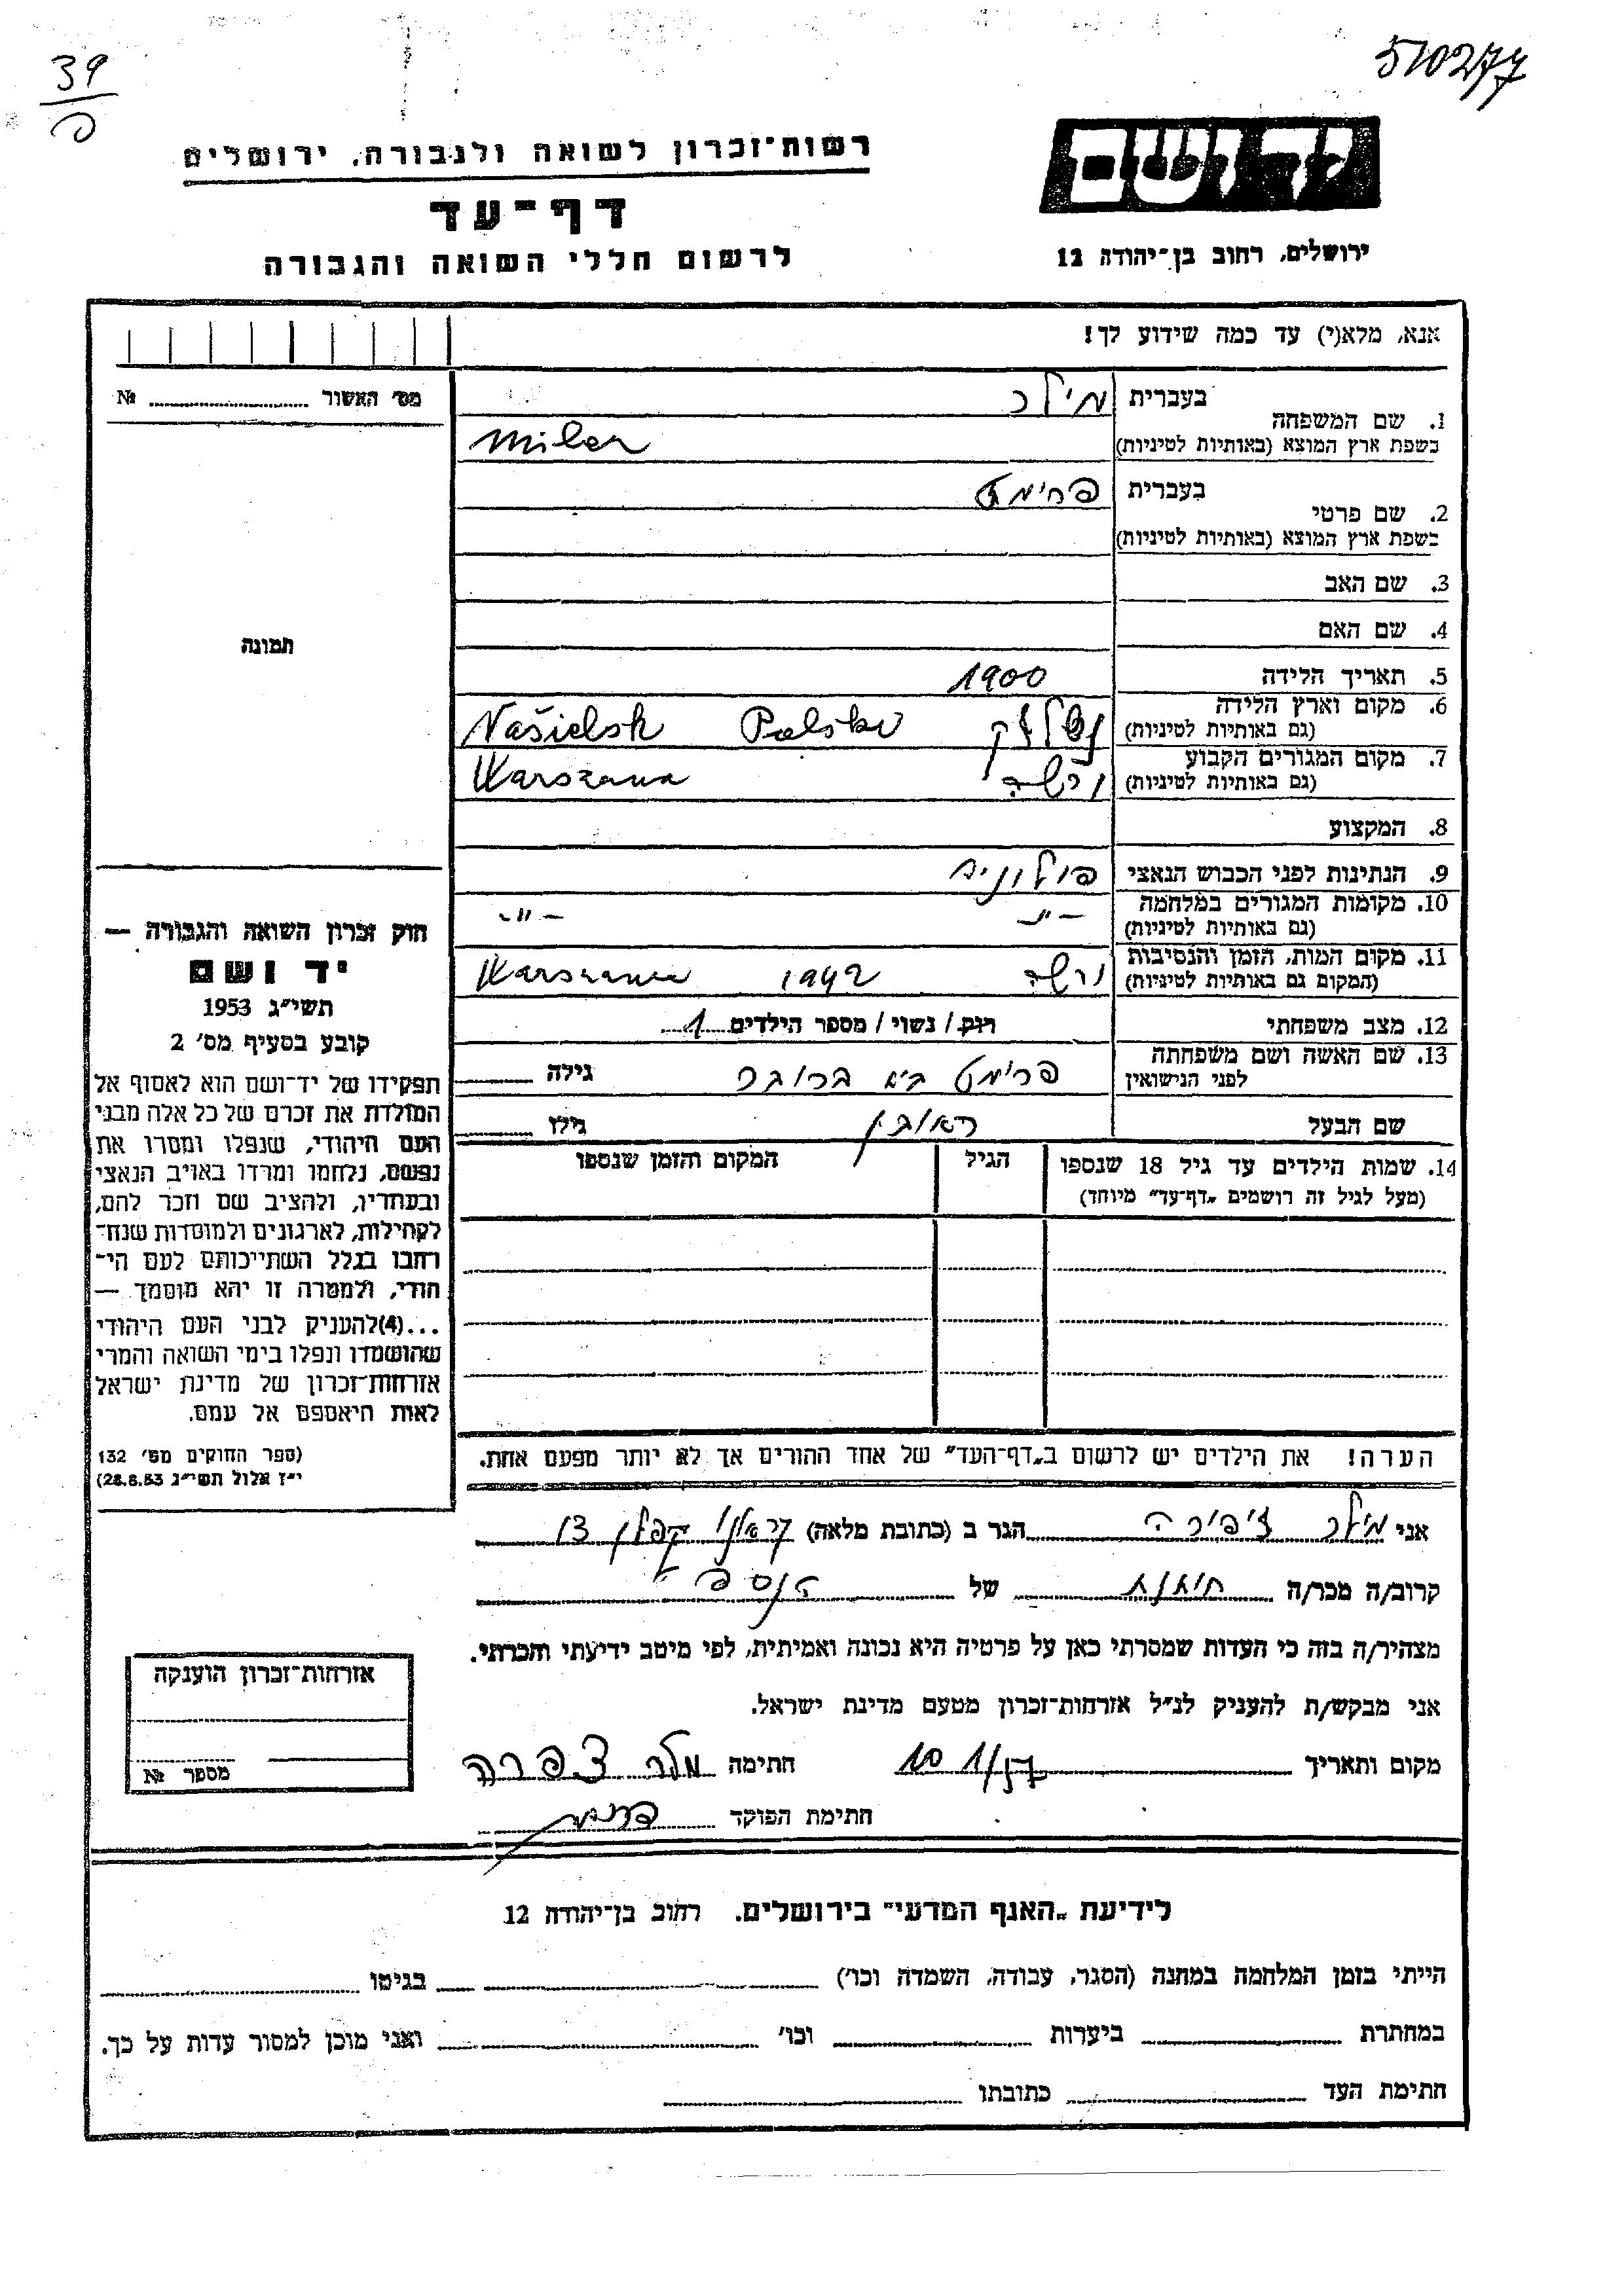 39
כ
510277
יד ושם
רשות־זכרון לשואה ולגבורה, ירושלים
דף־עד
לרשום חללי השואה והגבורה
ירושלים, רחוב בן־יהודה 12
אנא, מלא(י) עד כמה שידוע לך!
מס׳ האשור № ........
1. שם המשפחה
בעברית מילר
בשפת ארץ המוצא (באותיות לטיניות) Miler
2. שם פרטי
בעברית פרימט
בשפת ארץ המוצא (באותיות לטיניות)
3. שם האב
4. שם האם
תמונה
5. תאריך הלידה 1900
6. מקום וארץ הלידה
(גם באותיות לטיניות) נשלזק Polski Našielsk
7. מקום המגורים הקבוע
(גם באותיות לטיניות) ורשה Warszawa
8. המקצוע
9. הנתינות לפני הכבוש הנאצי פולונית
10. מקומות המגורים במלחמה
(גם באותיות לטיניות) –״– –״–
11. מקום המות, הזמן והנסיבות
(המקום גם באותיות לטיניות) ורשה 1942 Warszawa
12. מצב משפחתי רוק / נשוי / מספר הילדים 1
13. שם האשה ושם משפחתה
לפני הנישואין פרימט גילה
שם הבעל ראובן גילו
14. שמות הילדים עד גיל 18 שנספו הגיל המקום והזמן שנספו
(מעל לגיל זה רושמים „דף־עד״ מיוחד)
הערה! את הילדים יש לרשום ב„דף־העד״ של אחד ההורים אך לא יותר מפעם אחת.
חוק זכרון השואה והגבורה —
יד ושם
תשי״ג 1953
קובע בסעיף מס׳ 2
תפקידו של יד־ושם הוא לאסוף אל
המולדת את זכרם של כל אלה מבני
העם היהודי, שנפלו ומסרו את
נפשם, נלחמו ומרדו באויב הנאצי
ובעוזריו, ולהציב שם וזכר להם,
לקהילות, לארגונים ולמוסדות שנח־
רבו בגלל השתייכותם לעם הי־
הודי, ולמטרה זו יהא מוסמך —
...(4)להעניק לבני העם היהודי
שהושמדו ונפלו בימי השואה והמרי
אזרחות־זכרון של מדינת ישראל
לאות היאספם אל עמם.
(ספר החוקים מס׳ 132
י״ז אלול תשי״ג 28.8.53)
אני מילר ציפורה הגר ב (כתובת מלאה) קפלן 13
קרוב/ה מכר/ה חותנת של הנספה
מצהיר/ה בזה כי העדות שמסרתי כאן על פרטיה היא נכונה ואמיתית, לפי מיטב ידיעתי והכרתי.
אני מבקש/ת להעניק לנ״ל אזרחות־זכרון מטעם מדינת ישראל.
מקום ותאריך חתימה מלר צפרה
חתימת הפוקד
אזרחות־זכרון הוענקה
מספר №
לידיעת „האגף המדעי״ בירושלים. רחוב בן־יהודה 12
הייתי בזמן המלחמה במחנה (הסגר, עבודה, השמדה וכו׳) בגיטו
במחתרת ביערות וכו׳ ואני מוכן למסור עדות על כך.
חתימת העד כתובתו